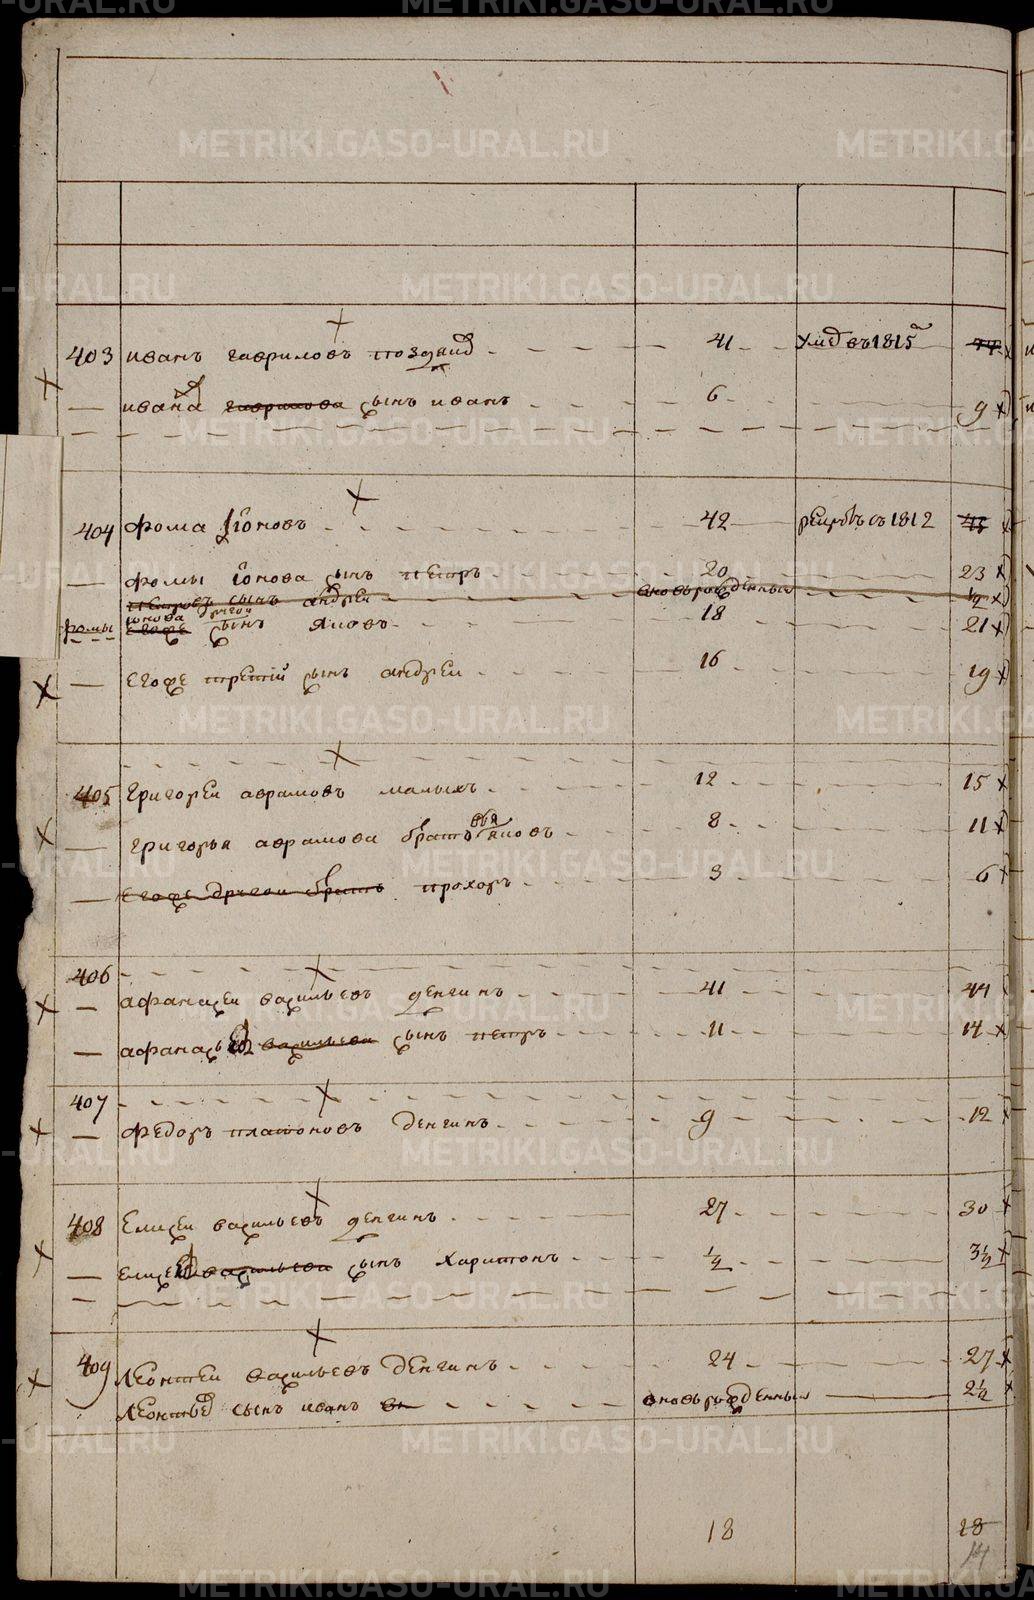 METRIKI.GASO-URAL.RU
403 иванъ гавриловъ 41 1815 44
— ивана гаврилова сынъ иванъ 6 9
404 фома іоновъ 42 1812 45
— фомы іонова сынъ петръ 20 23
петровъ сынъ андреи вновьрожденныи 1/2
фомы іонова другои
егоже сынъ яковъ 18 21
— егоже третій сынъ андреи 16 19
405 григореи аврамовъ малыхъ 12 15
— григорья аврамова братъ яковъ 8 11
— егоже другои братъ прохоръ 3 6
406
— афанасеи васильевъ денгинъ 41 44
— афанасья васильева сынъ петръ 11 14
407
— федоръ платоновъ денгинъ 9 12
408 елисеи васильевъ денгинъ 27 30
— елисея васильева сынъ харитонъ 1/2 3 1/2
409 леонтеи васильевъ денгинъ 24 27
леонтья сынъ иванъ вновьрожденныи 2 1/2
18 18
14